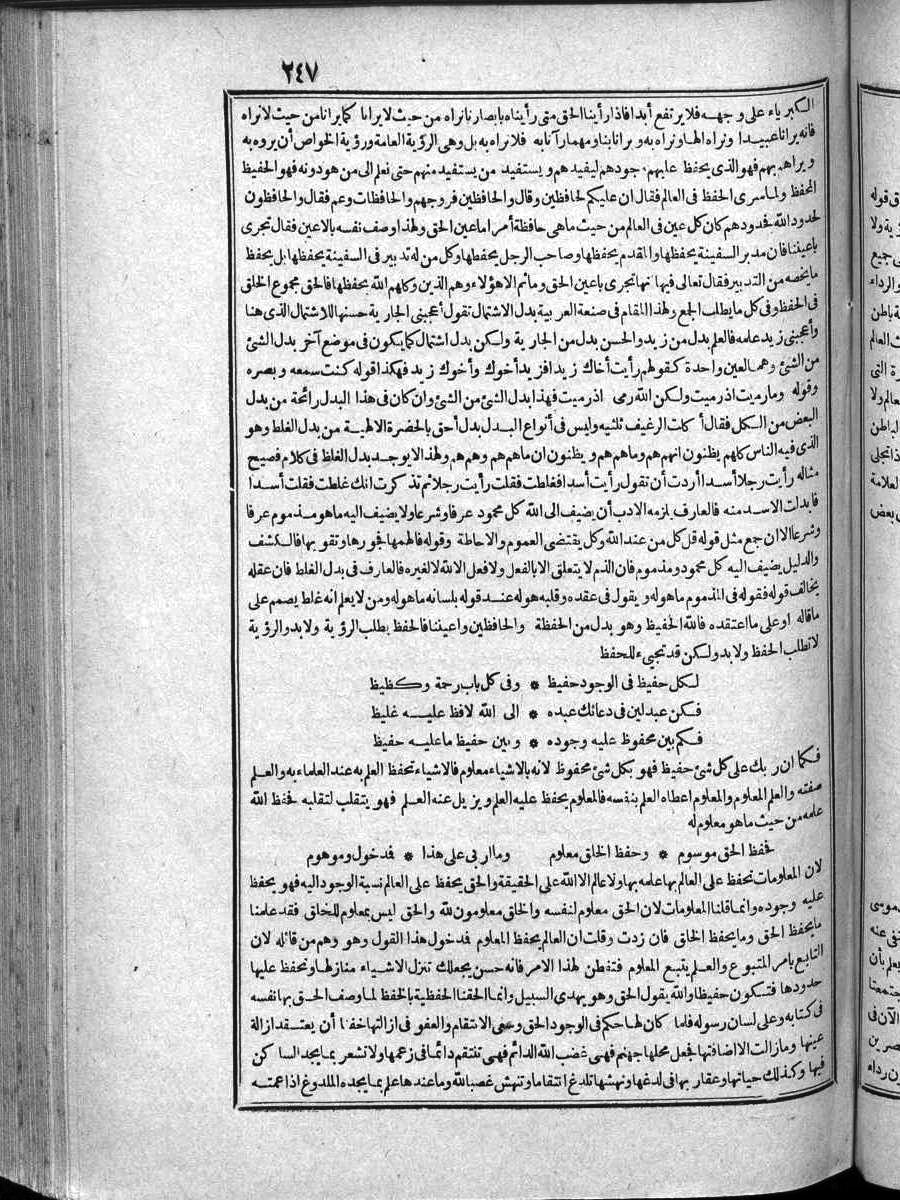 ٢٤٧
الكبرياء على وجهه فلا يرتفع أبدا فاذا رأينا الحق متى رأيناه بابصارنا نراه من حيث لا يرانا كما يرانا من حيث لا نراه
فانه يرانا عبيدا ونراه الها ونراه به ويرانا بنا ومهما رآنا به فلا نراه به بل وهى الرؤية العامة ورؤية الخواص أن يروه به
ويراهم بهم فهو الذى يحفظ عليهم وجودهم ليفيدهم ويستفيد من يستفيد منهم حتى نعلم الى من هو دونه فهو الحفيظ
المحفظ ولما سرى الحفظ فى العالم فقال ان عليكم لحافظين وقال والحافظين فروجهم والحافظات وعم فقال والحافظون
لحدود الله فحدودهم كان كل عين فى العالم من حيث ماهى حافظة أمرا ما عين الحق ولهذا وصف نفسه بالاعين فقال تجرى
باعيننا فان مدبر السفينة يحفظها والمقدم يحفظها وصاحب الرجل يحفظها وكل من له تدبير فى السفينة يحفظها بل يحفظ
ما يخصه من التدبير فقال تعالى فيها انها تجرى باعين الحق وماثم الاهؤلاء وهم الذين وكلهم الله بحفظها فالحق مجموع الخلق
فى الحفظ وفى كل ما يطلب الجمع ولهذا المقام فى صنعة العربية بدل الاشتمال تقول أعجبنى الجارية حسنها للاشتمال الذى هنا
وأعجبنى زيد علمه فالعلم بدل من زيد والحسن بدل من الجارية ولكن بدل اشتمال كما يكون فى موضع آخر بدل الشئ
من الشئ وهما لعين واحدة كقولهم رأيت أخاك زيدا فزيد أخوك وأخوك زيد فهكذا قوله كنت سمعه وبصره
وقوله ومارميت اذ رميت ولكن الله رمى اذ رميت فهذا بدل الشئ من الشئ وان كان فى هذا البدل رائحة من بدل
البعض من الكل فقال أكلت الرغيف ثلثيه وليس فى أنواع البدل بدل أحق بالحضرة الالهية من بدل الغلط وهو
الذى فيه الناس كلهم يظنون انهم هم وماهم هم ويظنون ان ماهم هم وهم هم ولهذا لا يوجد بدل الغلط فى كلام فصيح
مثاله رأيت رجلا أسدا أردت أن تقول رأيت أسدا فغلطت فقلت رأيت رجلا ثم تذكرت انك غلطت فقلت أسدا
فابدلت الاسد منه فالعارف يلزمه الادب أن يضيف الى الله كل محمود عرفا وشرعا ولا يضيف اليه ماهو مذموم عرفا
وشرعا الا ان جمع مثل قوله قل كل من عند الله وكل يقتضى العموم والاحاطة وقوله فالهمها فجورها وتقواها فالكشف
والدليل يضيف اليه كل محمود ومذموم فان الذم لا يتعلق الا بالفعل ولا فعل الا لله لا لغيره فالعارف فى بدل الغلط فان عقله
يخالف قوله فقوله فى المذموم ماهو له ويقول فى عقده وقلبه هو له عند قوله بلسانه ماهو له ومن لا يعلم انه غلط يصمم على
ماقاله أو على ما اعتقده فالله الحفيظ وهو بدل من الحفظة والحافظين واعيننا فالحفظ يطلب الرؤية ولا بد والرؤية
لا تطلب الحفظ ولا بد ولكن قد تجىء للحفظ
لكل حفيظ فى الوجود حفيظ * وفى كل باب رحمة وكظيظ
فكن عبد لين فى دعائك عبده * الى الله لا فظ عليه غليظ
فكم بين محفوظ عليه وجوده * وبين حفيظ ما عليه حفيظ
فكما ان ربك على كل شئ حفيظ فهو بكل شئ محفوظ لانه بالاشياء معلوم فالاشياء تحفظ العلم به عند العلماء به والعلم
صفته والعلم المعلوم والمعلوم اعطاه العلم بنفسه فالمعلوم يحفظ عليه العلم ويزيل عنه العلم فهو يتقلب لتقلبه فحفظ الله
علمه من حيث ماهو معلوم له
فحفظ الحق موسوم * وحفظ الخلق معلوم وما أربى على هذا * فدخول وموهوم
لان المعلومات تحفظ على العالم بها علمه بها ولا عالم الا الله على الحقيقة والحق يحفظ على العالم نسبة الوجود اليه فهو يحفظ
عليه وجوده وانما قلنا المعلومات لان الحق معلوم لنفسه والخلق معلومون لله والحق ليس بمعلوم للخلق فقد علمنا
ما يحفظ الحق وما يحفظ الخلق فان زدت وقلت ان العالم يحفظ المعلوم فدخول هذا القول وهو وهم من قائله لان
التابع بامر المتبوع والعلم يتبع المعلوم فتفطن لهذا الامر فانه حسن يجعلك تنزل الاشياء منازلها وتحفظ عليها
حدودها فتكون حفيظا والله يقول الحق وهو يهدى السبيل وانما الحقنا الحفظية بالحفظ لما وصف الحق بها نفسه
فى كتابه وعلى لسان رسوله فلما كان لها حكم فى الوجود الحق وعمى الانتقام والعفو فى ازالتها خفنا أن يعتقد ازالة
عينها ومازالت الا اضافتها فجعل محلها جهنم فهى غضب الله الدائم فهى تنتقم دائما فى زعمها ولا تشعر بما يجد الساكن
فيها وكذلك حياتها وعقاربها فى لدغها ونهشها تلدغ انتقاما وتنهش غضبا لله وما عندها علم بما يجده الملدوغ اذا عمته